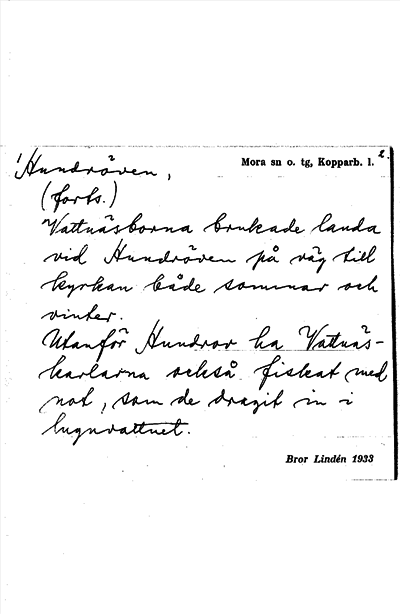 Mora sn o. tg, Kopparb. l. 2.
'Hundröven,
(forts.)
Vattnäsborna brukade landa
vid Hundröven på väg till
kyrkan både sommar och
vinter.
Utanför Hundror ha Vattnäs-
karlarna också fiskat med
not, som de dragit in i
lugnvattnet.
Bror Lindén 1933